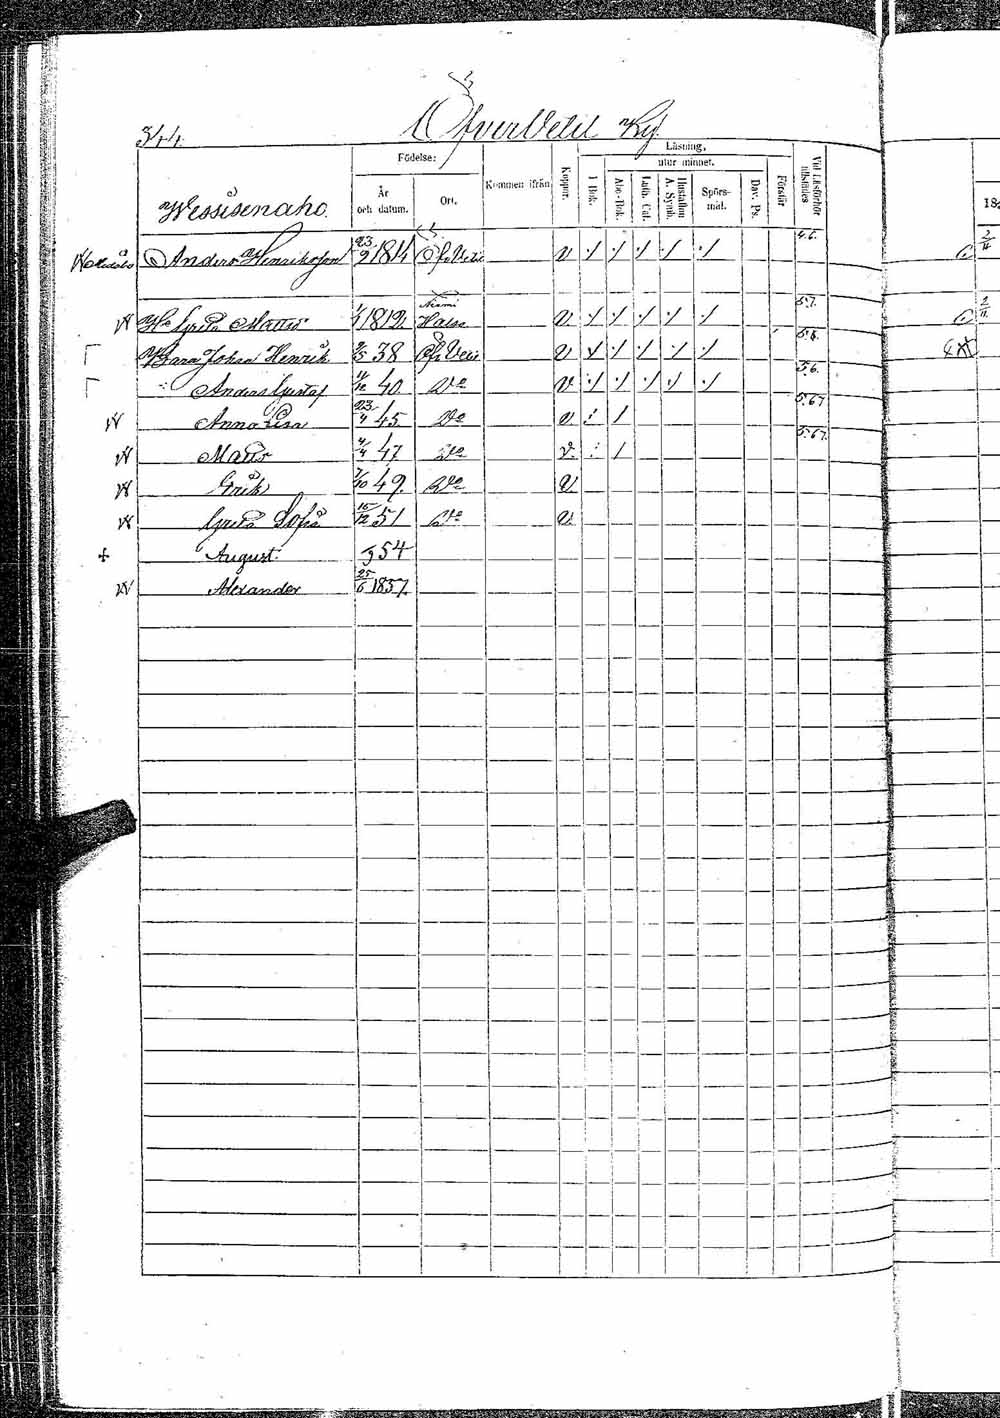 344.
ÖfverVetil By.
Wessisenaho.
Födelse:
År och datum.
Ort.
Kommen ifrån
Koppor.
Läsning,
utur minnet.
I Bok.
Abc-Bok.
Luth. Cat.
Hustaflan A. Symb.
Spörs-mål.
Dav. Ps.
Förstår
Vid Läsförhör tillstädes
18
Anders Henriksson 23/2 1814 ÖfVetil v 5.6.
H. Greta Mattsd. 1812 Niemi Halso v 5.7.
Barn Johan Henrik 9/5 38 ÖfVetil v 5.8.
Anders Gustaf 40 Do v 5.6.
Anna Lisa 23/4 45 Do v 5.67
Matts 4/4 47 Do v 5.67.
Erik 7/10 49. Do v
Greta Sofia 15/12 51 Do v
August. 54
Alexander 25/6 1857.